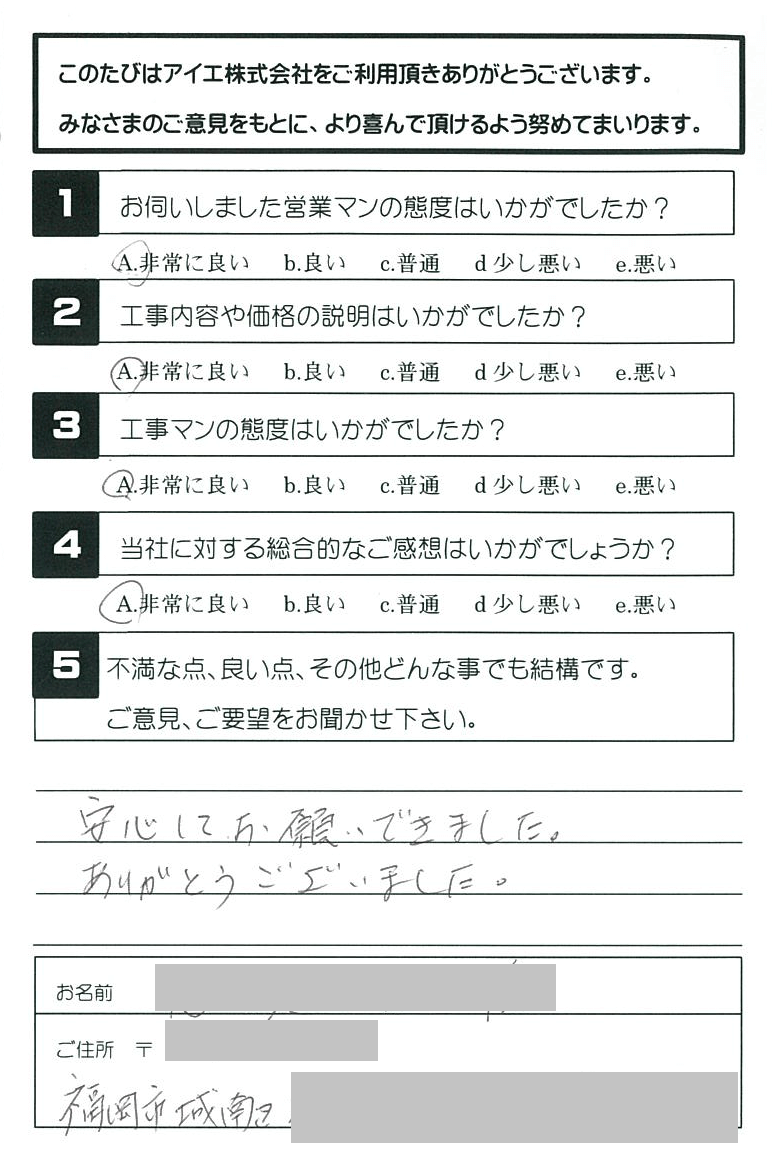 このたびはアイエ株式会社をご利用頂きありがとうございます。
みなさまのご意見をもとに、より喜んで頂けるよう努めてまいります。
1 お伺いしました営業マンの態度はいかがでしたか？
A.非常に良い b.良い c.普通 d 少し悪い e.悪い
2 工事内容や価格の説明はいかがでしたか？
A.非常に良い b.良い c.普通 d 少し悪い e.悪い
3 工事マンの態度はいかがでしたか？
A.非常に良い b.良い c.普通 d 少し悪い e.悪い
4 当社に対する総合的なご感想はいかがでしょうか？
A.非常に良い b.良い c.普通 d 少し悪い e.悪い
5 不満な点、良い点、その他どんな事でも結構です。
ご意見、ご要望をお聞かせ下さい。
安心してお願いできました。
ありがとうございました。
お名前
ご住所 〒
福岡市城南区